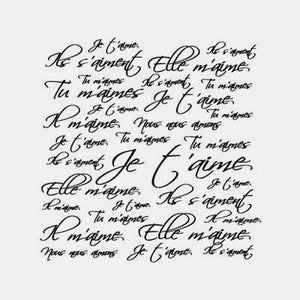 Je t'aime.
Ils s'aiment
Ils s'aiment Elle m'aime.
Tu m'aimes
Tu m'aimes Je t'aime.
Je t'aime.
Il m'aime. Nous nous aimons
Je t'aime. Tu m'aimes
Ils s'aiment Je t'aime. Ils s'aiment
Elle m'aime. Ils s'aiment
Il m'aime. Tu m'aimes Il m'aime.
Il m'aime. Elle m'aime.
Nous nous aimons Je t'aime. Ils s'aiment